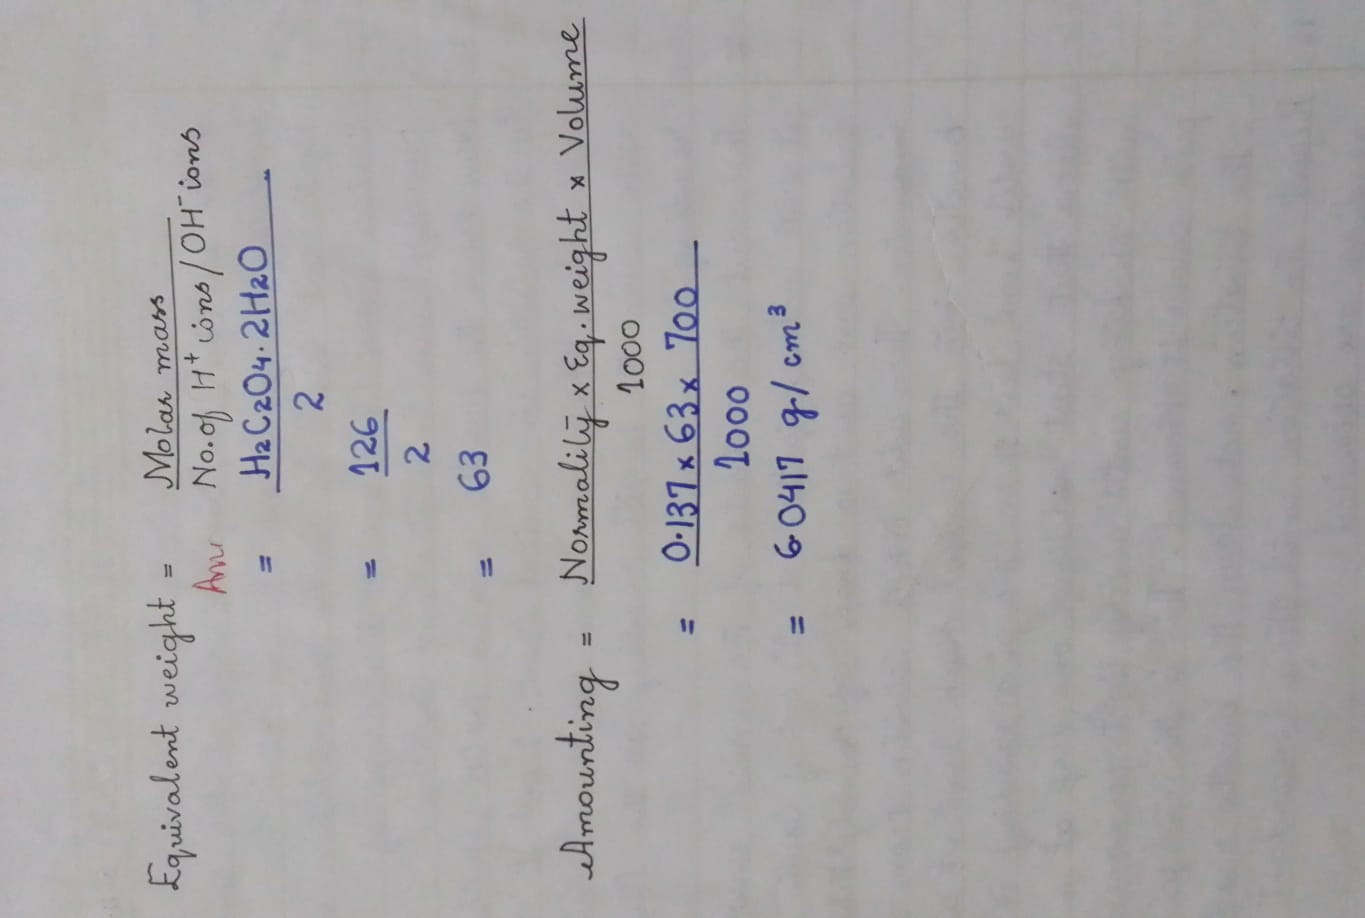 Equivalent weight = Molar mass
No. of H⁺ ions / OH⁻ ions
= H₂C₂O₄·2H₂O
2
= 126
2
= 63
Amounting = Normality × Eq. weight × Volume
1000
= 0.137 × 63 × 700
1000
= 6.0417 g/cm³